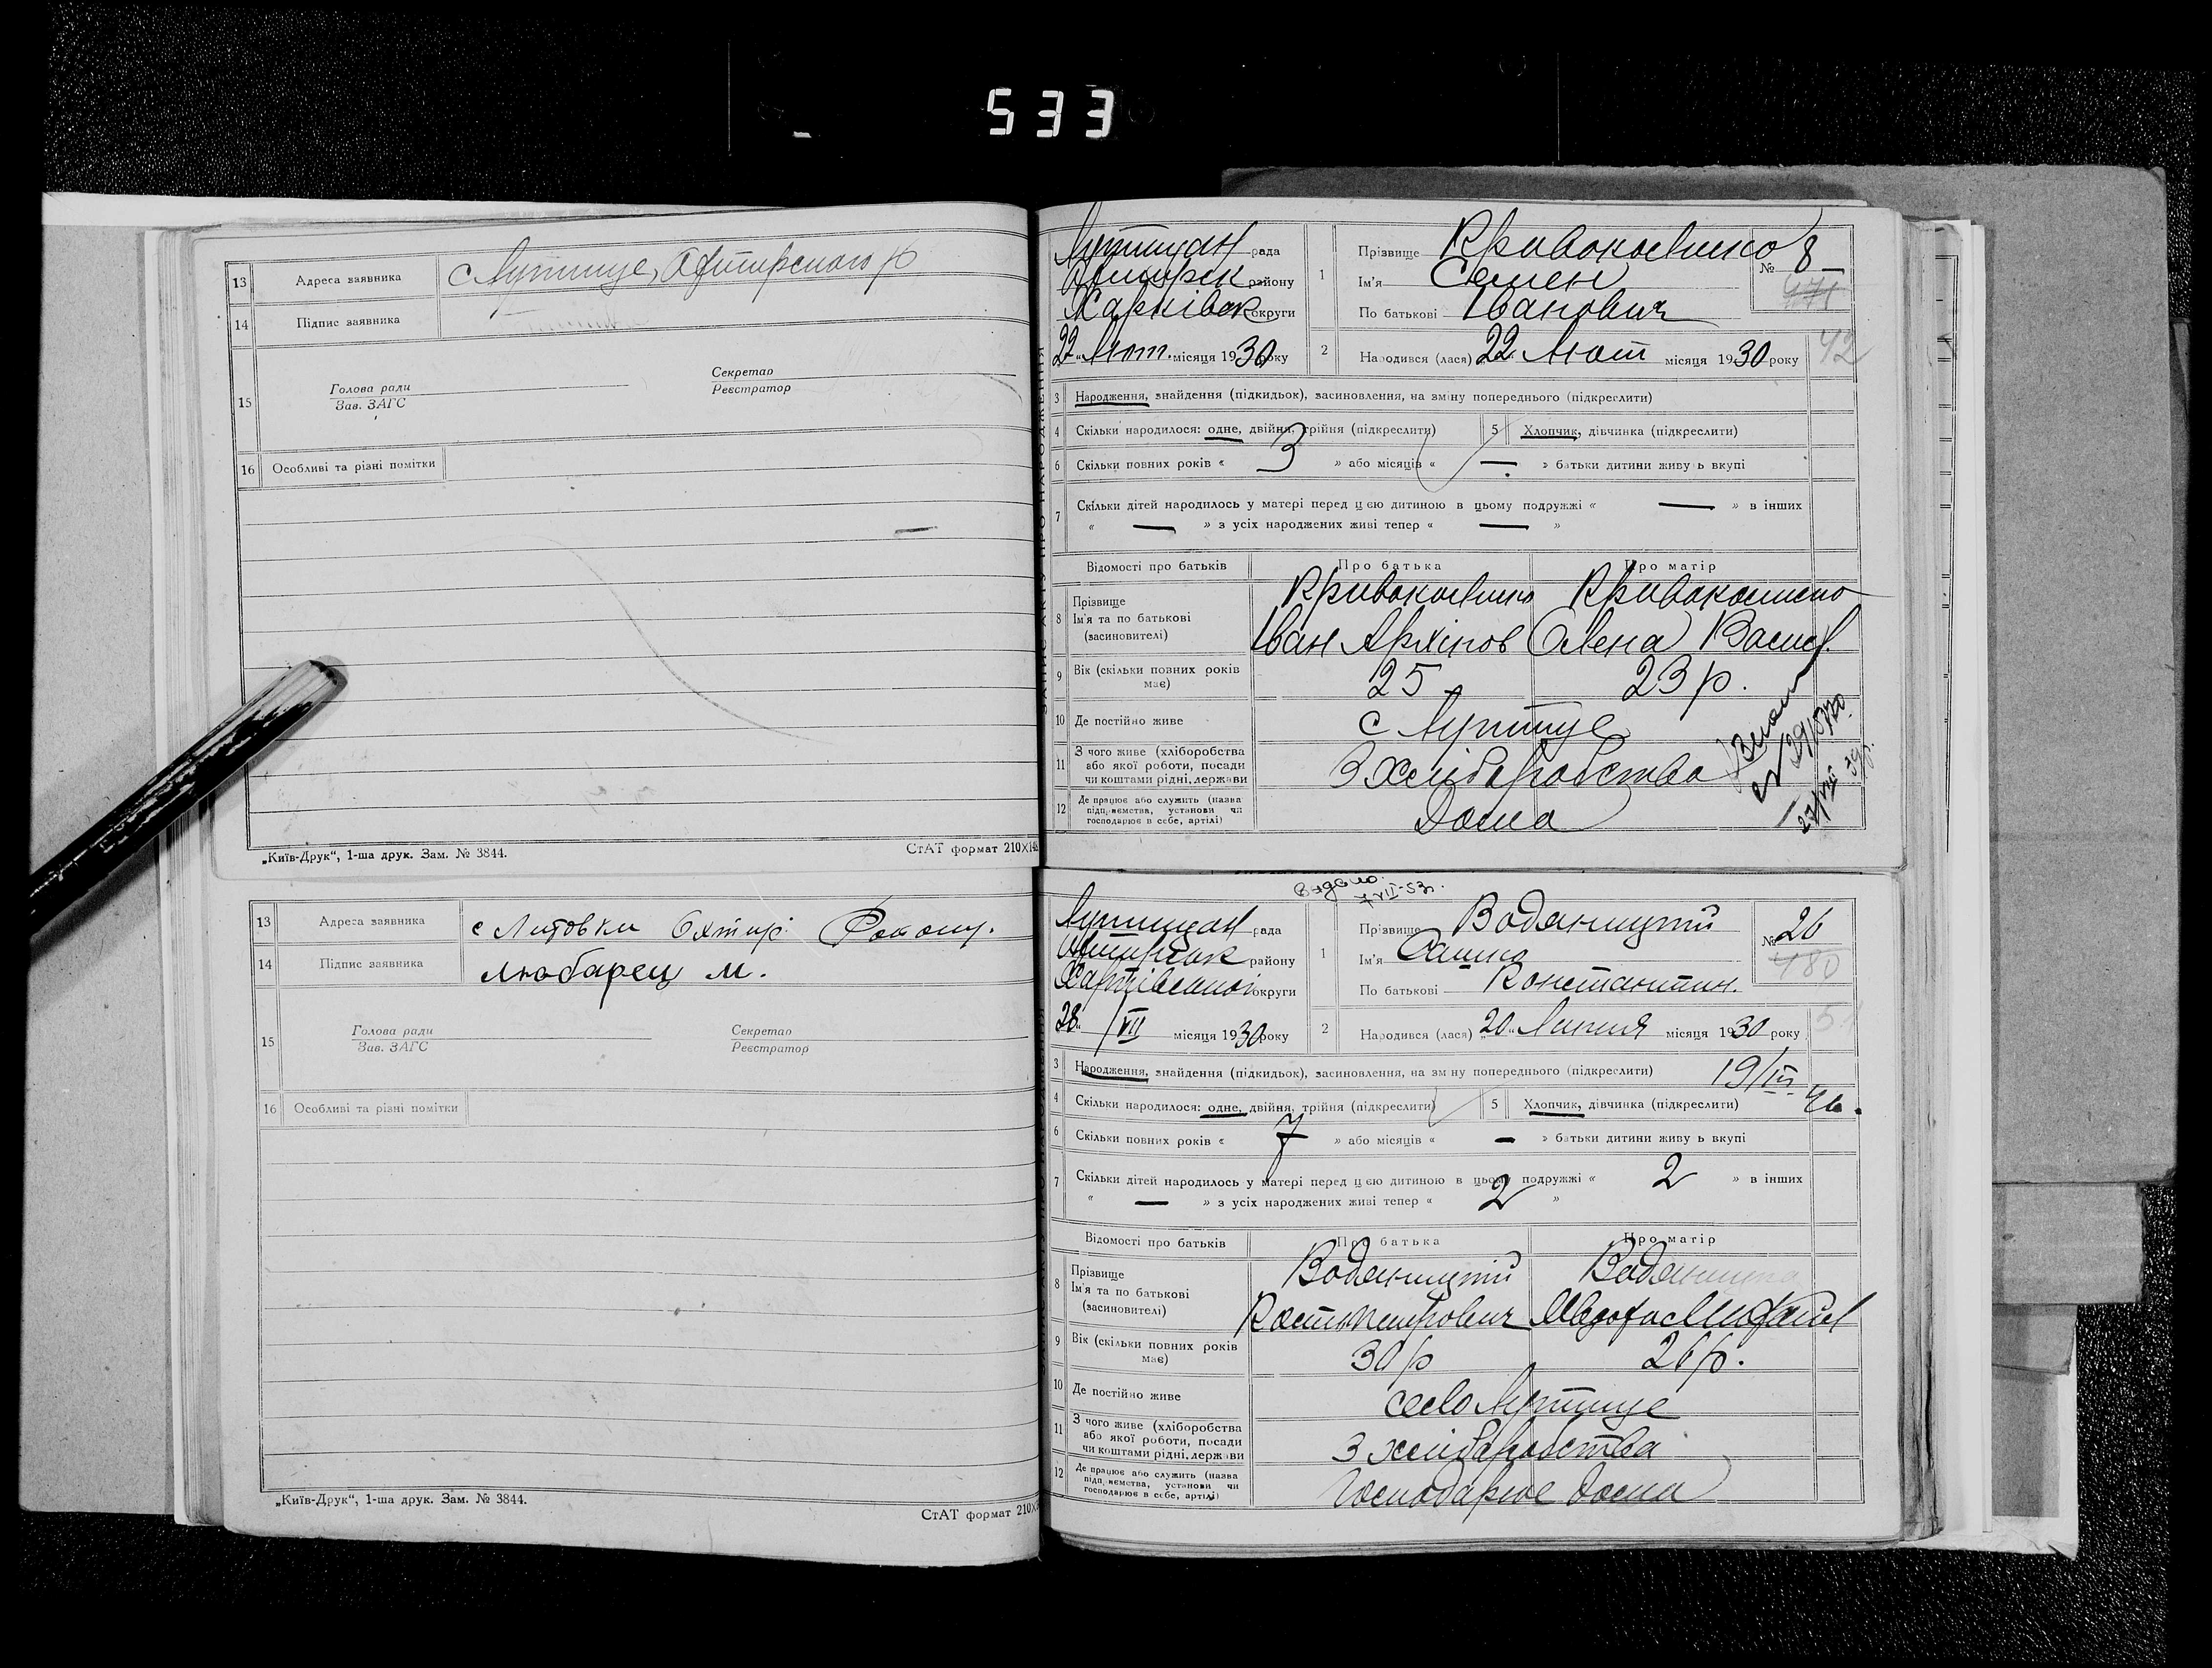 533
13 Адреса заявника с Лутище, Охтирского р
14 Підпис заявника
15 Голова ради
Зав. ЗАГС
Секретар
Реєстратор
16 Особливі та різні помітки
„Київ-Друк“, 1-ша друк. Зам. № 3844.
СтАТ формат 210×148
13 Адреса заявника с Литовки Охтир.
14 Підпис заявника Любарец М.
15 Голова ради
Зав. ЗАГС
Секретар
Реєстратор
16 Особливі та різні помітки
„Київ-Друк“, 1-ша друк. Зам. № 3844.
СтАТ формат 210×
Лутищан рада
Охтирськ району
Харківськ округи
22 Лют. місяця 1930 року
1 Прізвище
Ім'я Семен
По батькові Іванович
№ 8
471
42
2 Народився (лася) 22 Лют місяця 1930 року
3 Народження, знайдення (підкидьок), засиновлення, на зміну попереднього (підкреслити)
4 Скільки народилося: одне, двійня, трійня (підкреслити) 5 Хлопчик, дівчинка (підкреслити)
6 Скільки повних років « 3 » або місяців « — » батьки дитини живуть вкупі
7 Скільки дітей народилось у матері перед цією дитиною в цьому подружжі « — » в інших
« — » з усіх народжених живі тепер « — »
Відомості про батьків Про батька Про матір
8 Прізвище
Ім'я та по батькові Іван Архіпов Олена Васил.
(засиновителі)
9 Вік (скільки повних років має) 25 23 р.
10 Де постійно живе с Лутище
11 З чого живе (хліборобства
або якої роботи, посади З хліборобства
чи коштами рідні, держави
12 Де працює або служить (назва
підприємства, установи чи Дома
господарює в себе, артілі)
видано
7 VII-53г.
Лутищан рада
Охтирськ району
Харківської округи
28 / VII місяця 1930 року
1 Прізвище Водяницкій
Ім'я Сашко
По батькові Константин.
№ 26
480
2 Народився (лася) 20 Липня місяця 1930 року
3 Народження, знайдення (підкидьок), засиновлення, на зміну попереднього (підкреслити)
4 Скільки народилося: одне, двійня, трійня (підкреслити) 5 Хлопчик, дівчинка (підкреслити)
6 Скільки повних років « 7 » або місяців « — » батьки дитини живуть вкупі
7 Скільки дітей народилось у матері перед цією дитиною в цьому подружжі « 2 » в інших
« — » з усіх народжених живі тепер « 2 »
Відомості про батьків Про батька Про матір
8 Прізвище Водяницкій Водяницка
Ім'я та по батькові Кость Петрович
(засиновителі)
9 Вік (скільки повних років має) 30 р 26 р.
10 Де постійно живе село Лутище
11 З чого живе (хліборобства
або якої роботи, посади З хліборобства
чи коштами рідні, держави
12 Де працює або служить (назва
підприємства, установи чи Господарює дома
господарює в себе, артілі)